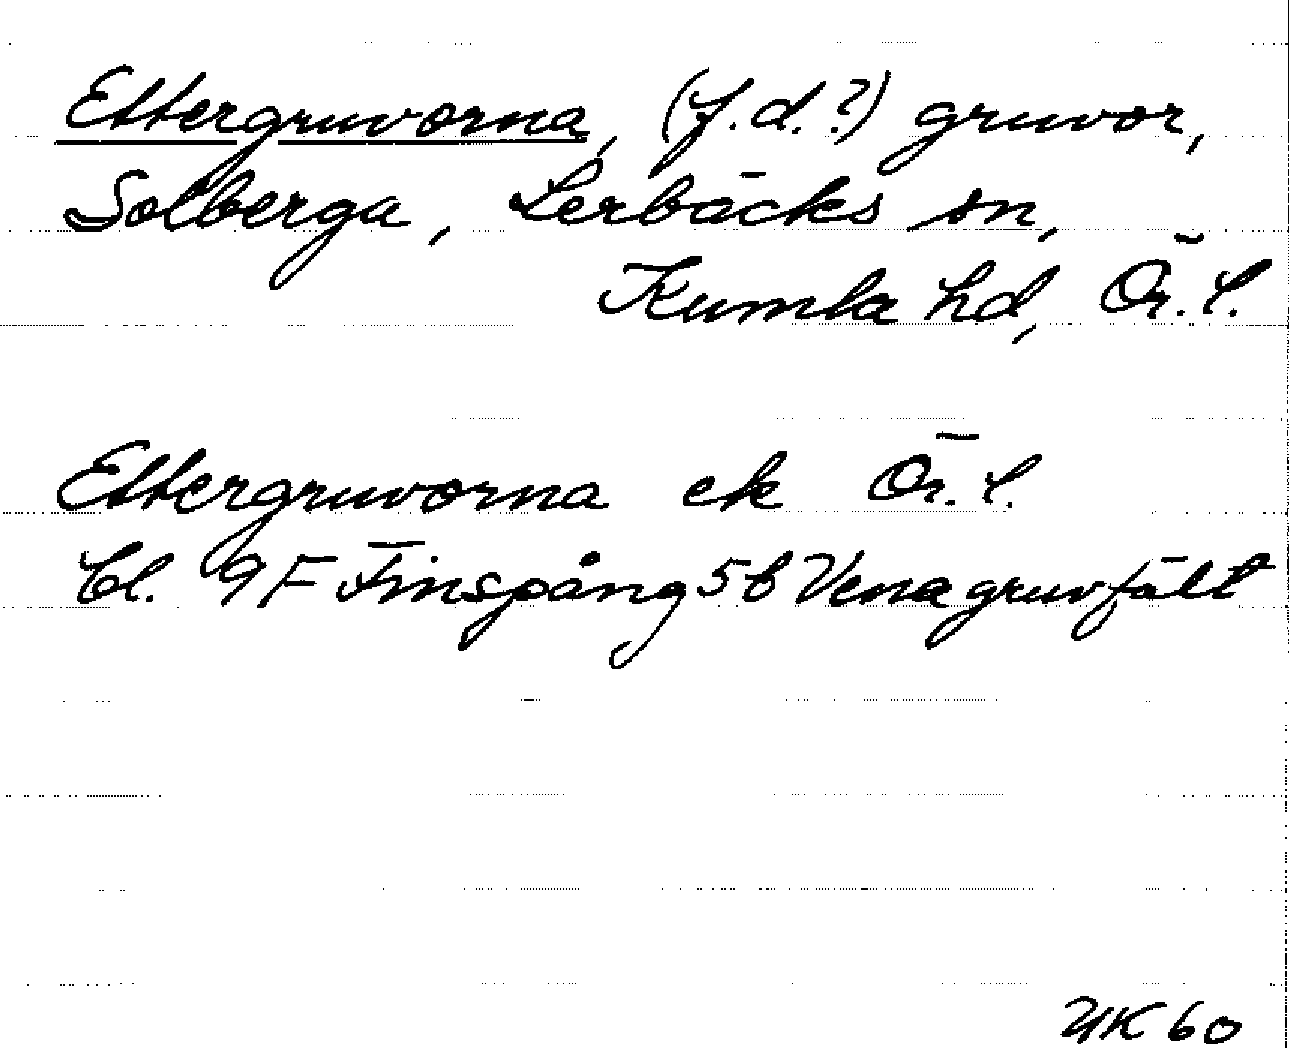 Ettergruvorna, (f.d.?) gruvor,
Solberga, Lerbäcks sn,
Kumla hd, Ör. l.
Ettergruvorna ek Ör. l.
bl. 9F Finspång 5b Venagruvfält
UK 60